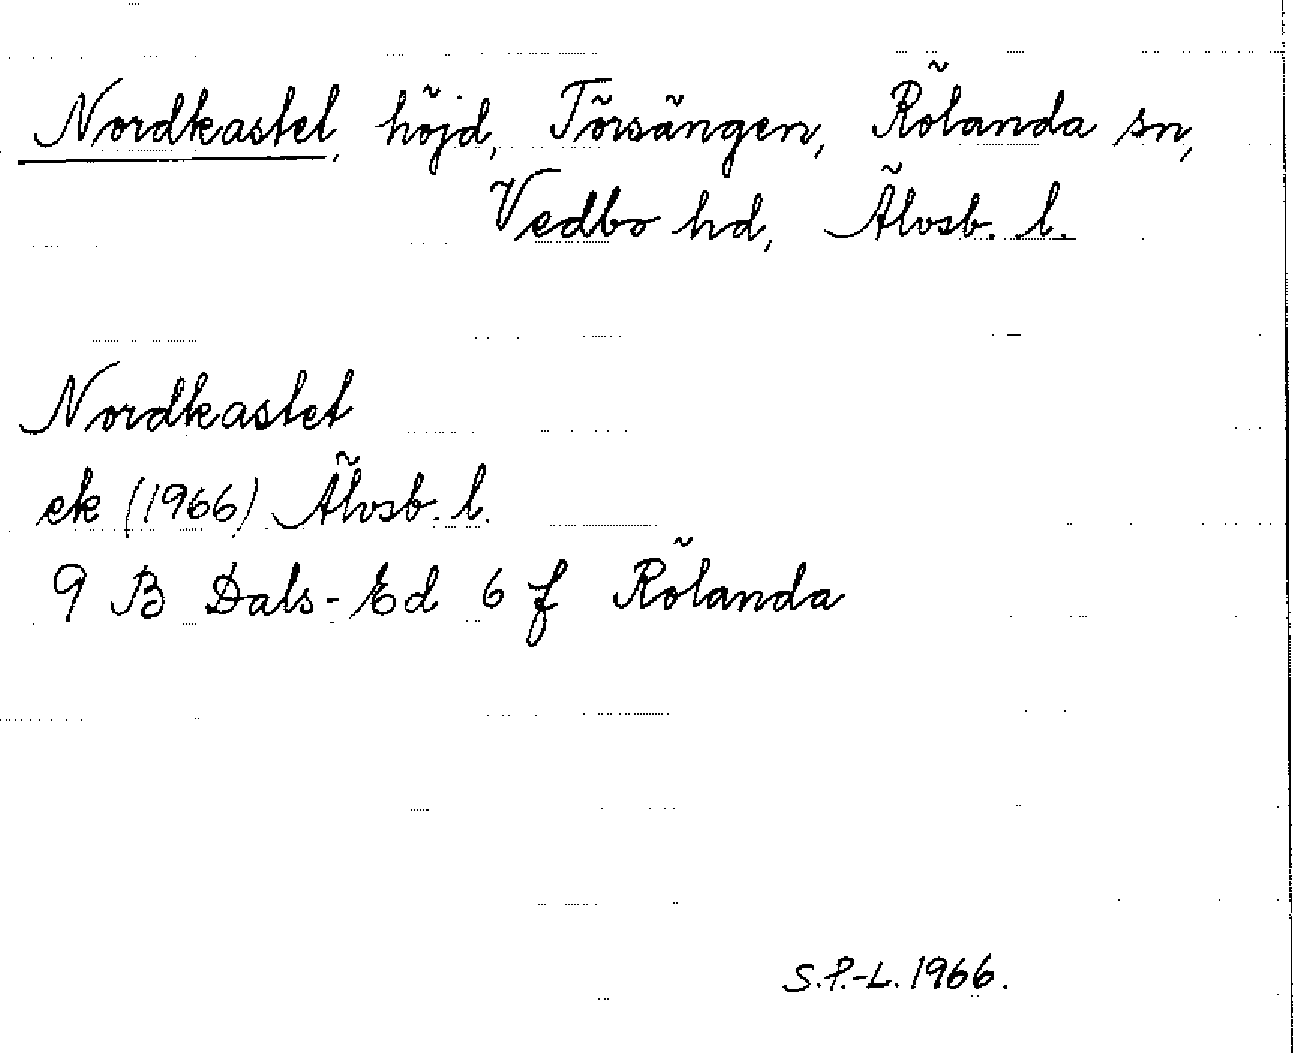 Nordkastet, höjd, Törsängen, Rölanda sn,
Vedbo hd, Älvsb. l.
Nordkastet
ek (1966) Älvsb. l.
9 B Dals-Ed 6 f Rölanda
S.P.-L. 1966.